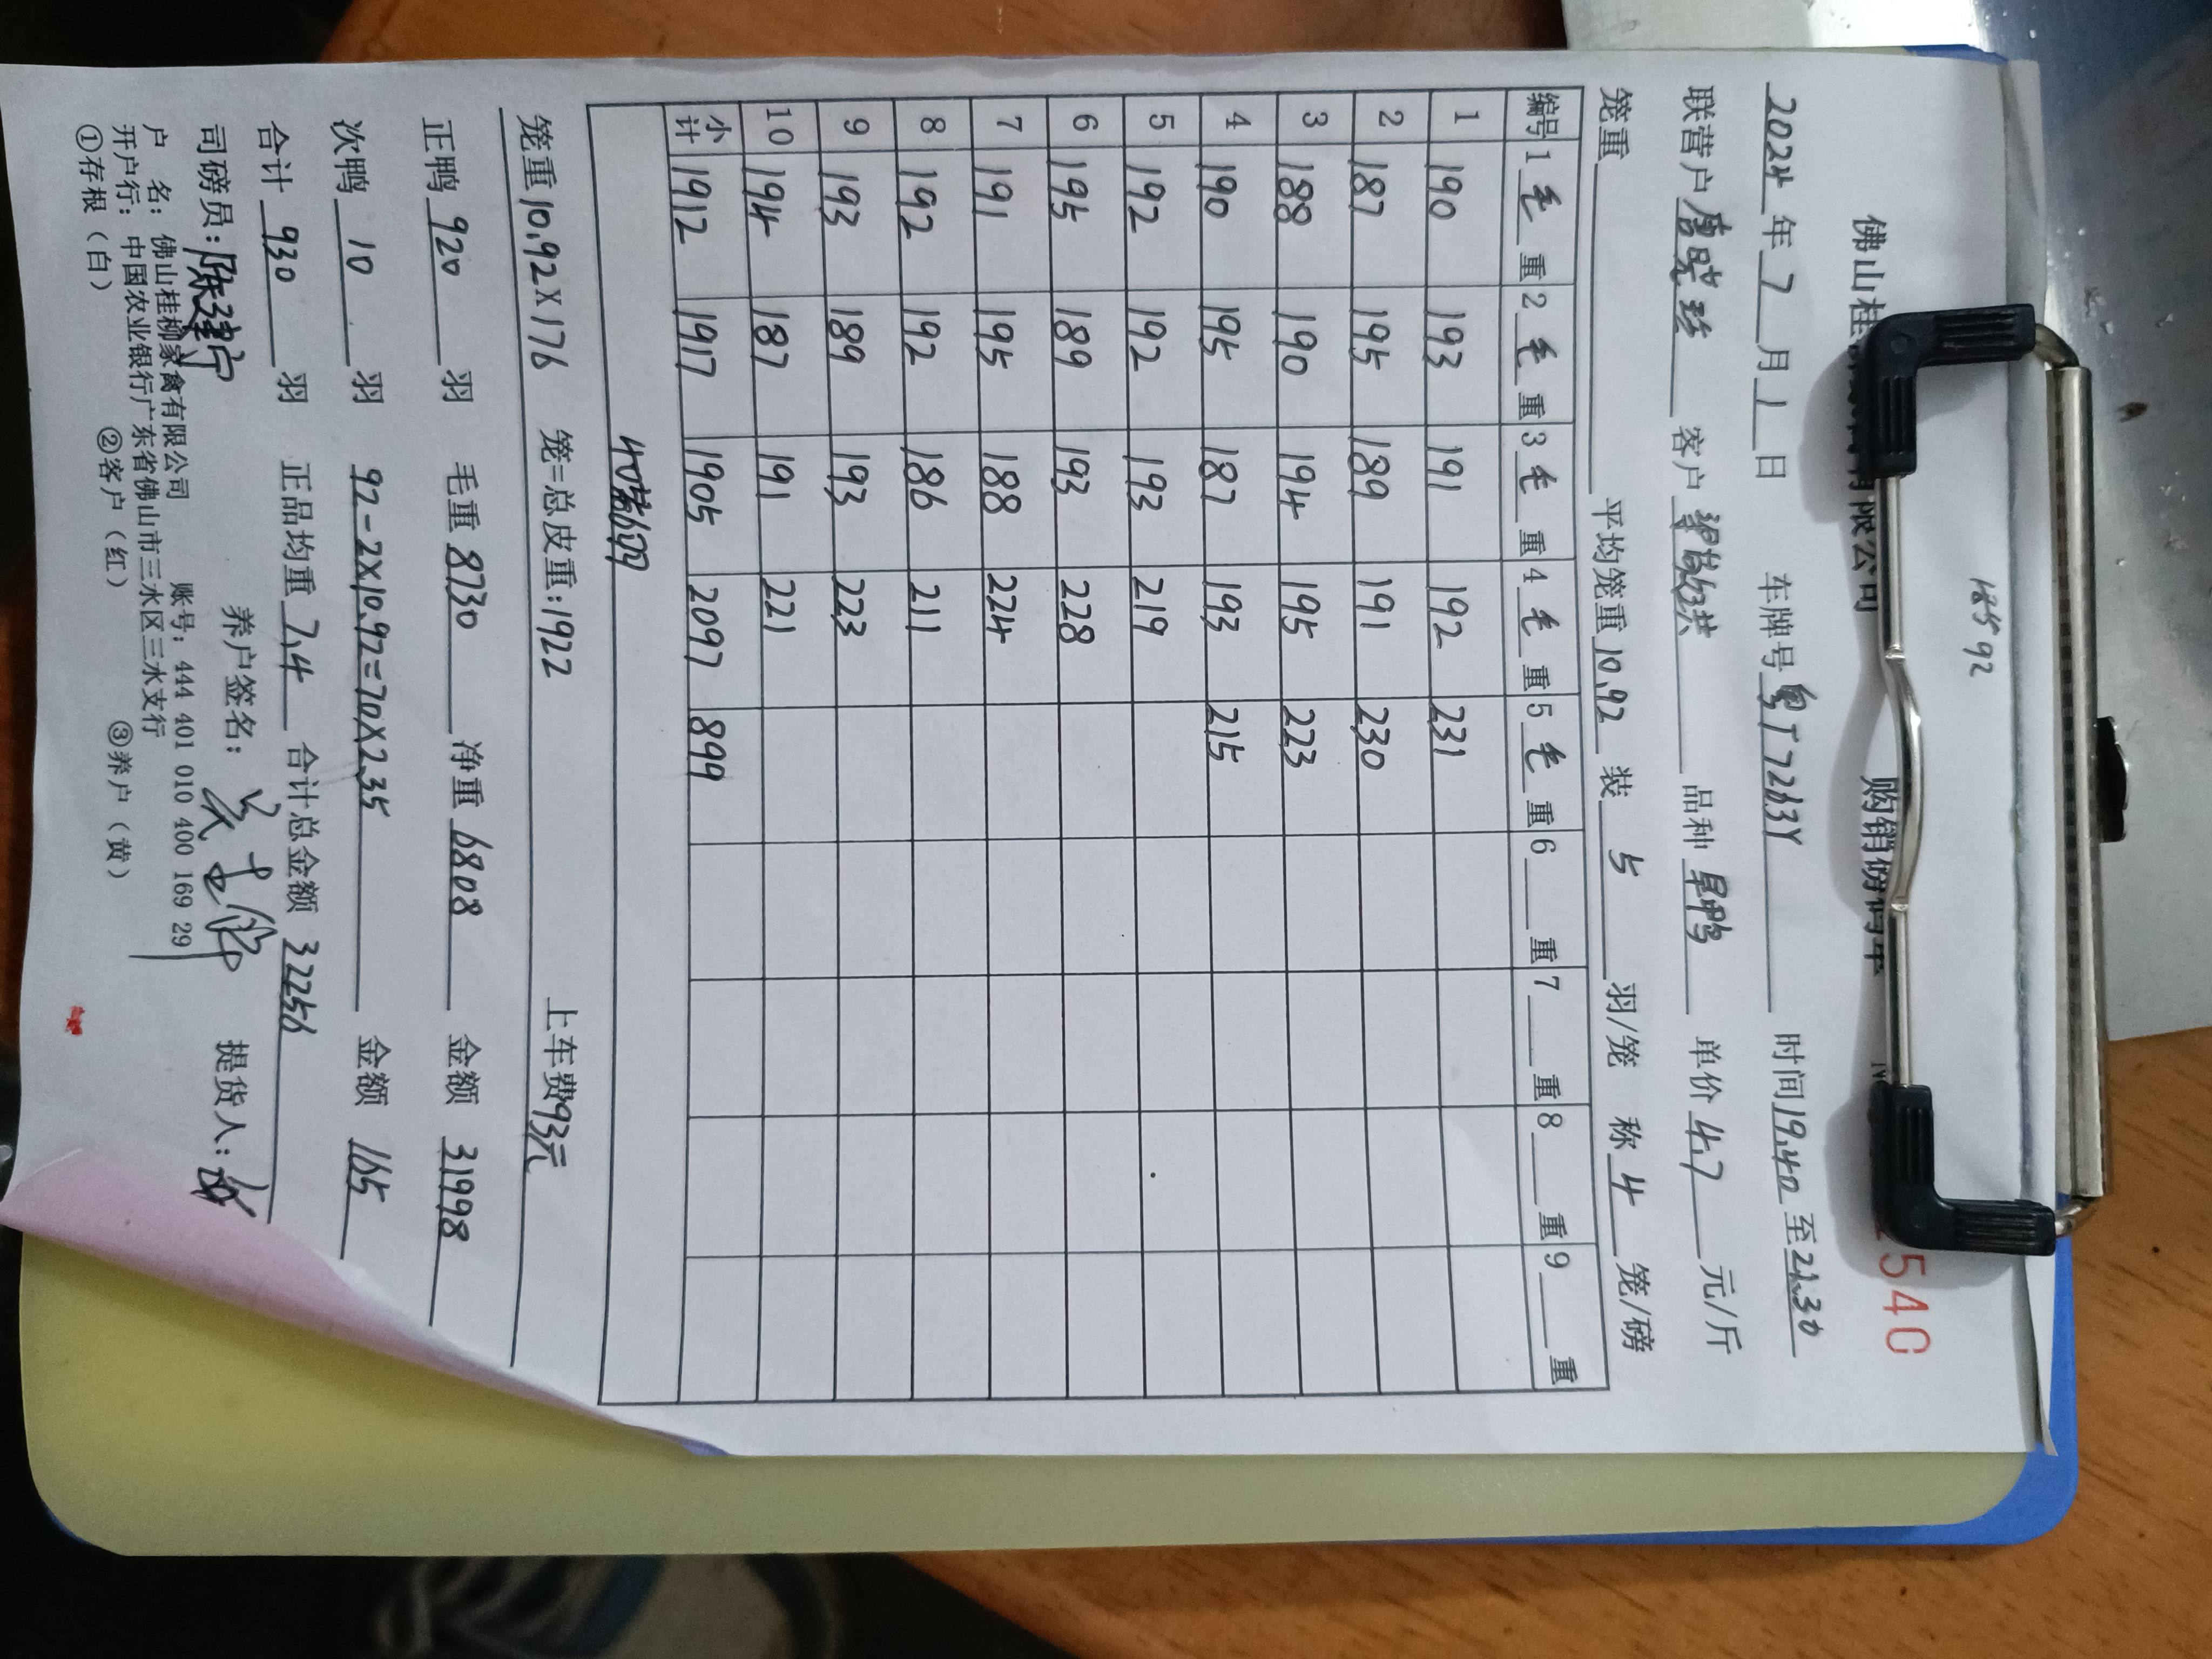 18592
佛山桂 有限公司 购销
540
2024年7月1日 车牌号粤T7263Y 时间19.40至21.30
联营户 客户 品种 单价4.7元/斤
笼重 平均笼重10.92 装5羽/笼 称4笼/磅
编号 1毛重 2毛重 3毛重 4毛重 5毛重 6 重 7 重 8 重 9 重
1 190 193 191 192 231
2 187 195 189 191 230
3 188 190 194 195 223
4 190 195 187 193 215
5 192 192 193 219
6 195 189 193 228
7 191 195 188 224
8 192 192 186 211
9 193 189 193 223
10 194 187 191 221
小计 1912 1917 1905 2097 899
笼重10.92X176 笼=总皮重:1922 上车费93元
正鸭920羽 毛重8730 净重6808 金额31998
次鸭10羽 92-2X10.92=70X2.35 金额165
合计930羽 正品均重7.4 合计总金额32256
司磅员:陈建宁 养户签名: 提货人:
户 名:佛山桂柳家禽有限公司 账号:444 401 010 400 169 29
开户行:中国农业银行广东省佛山市三水区三水支行
①存根(白) ②客户(红) ③养户(黄)